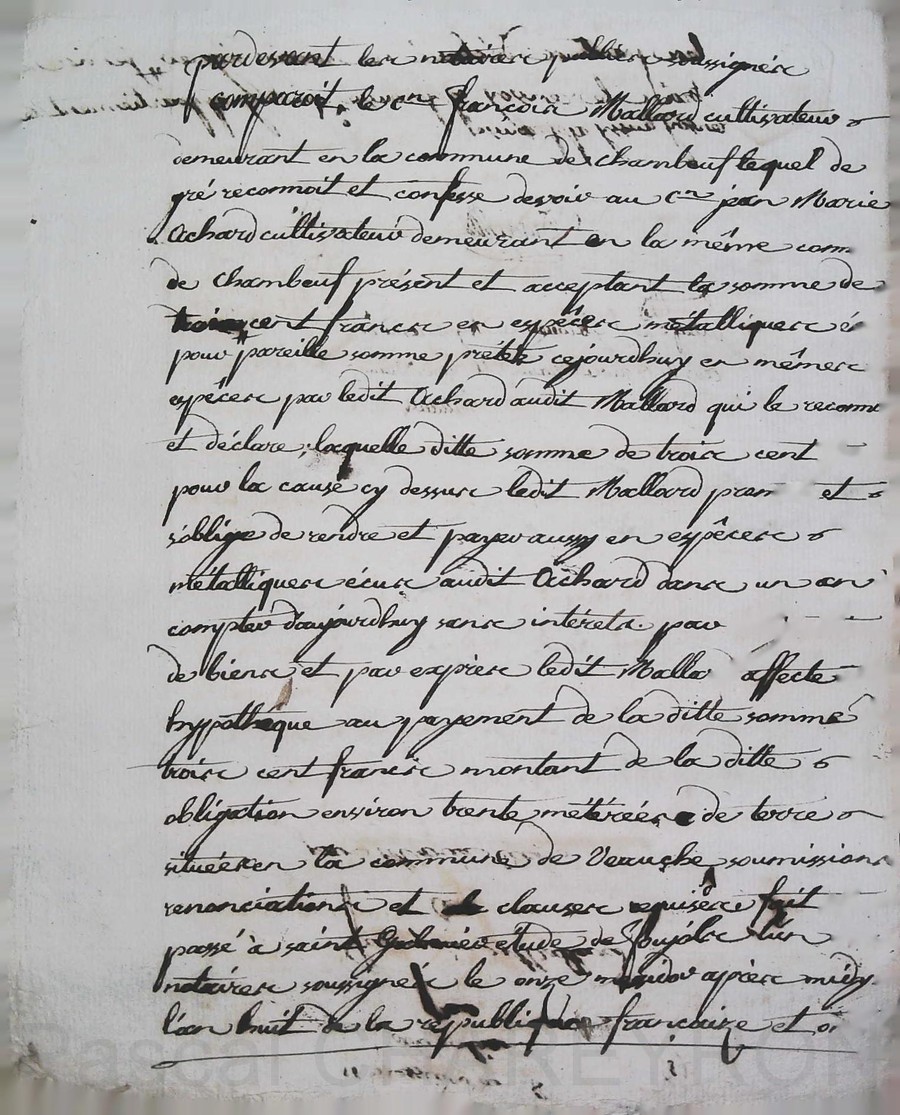 pardevant les notaires publics soussignés
comparoit le cen françois Mallard cultivateur
demeurant en la commune de chambeuf lequel de
gré reconnoit et confesse devoir au cen jean Marie
Achard cultivateur demeurant en la même com
de chambeuf présent et acceptant la somme de
trois cent francs en espêces métalliques
pour pareille somme prêtée cejourdhuy en mêmes
espêces par ledit Achard audit Mallard qui le reconn
et déclare, laquelle ditte somme de trois cent
pour la cause cy dessus ledit Mallard prom et
s'oblige de rendre et payer aussy en espêces
métalliques écus audit Achard dans un an
compter d'aujourdhuy sans intérets. par
de biens et par exprès ledit Malla affecte
hyppothéque au payement de la ditte somme
trois cent francs montant de la ditte
obligation environ trente métérées de terre
situées en la commune de Veauche soumissions
renonciations et clauses requises fait
passé à saint Galmier étude de l'un
notaires soussignés le onze messidor après midy
l'an huit de la république françoise et
Pascal CHAREYRON